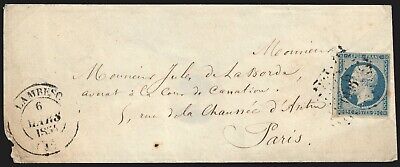 LAMBESC
6
MARS
REPUB. FRANC.
Monsieur
Monsieur Jules de la Borde,
avocat à la Cour de Cassation
5, rue de la Chaussée d'Antin
Paris.